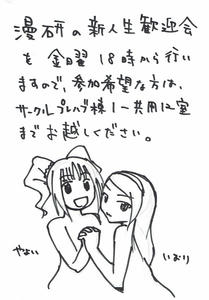 漫研の新人生歓迎会
を金曜18時から行い
ますので、参加希望な方は、
サークルプレハブ様1-共用に室
までお越しください。
やよい
いおり